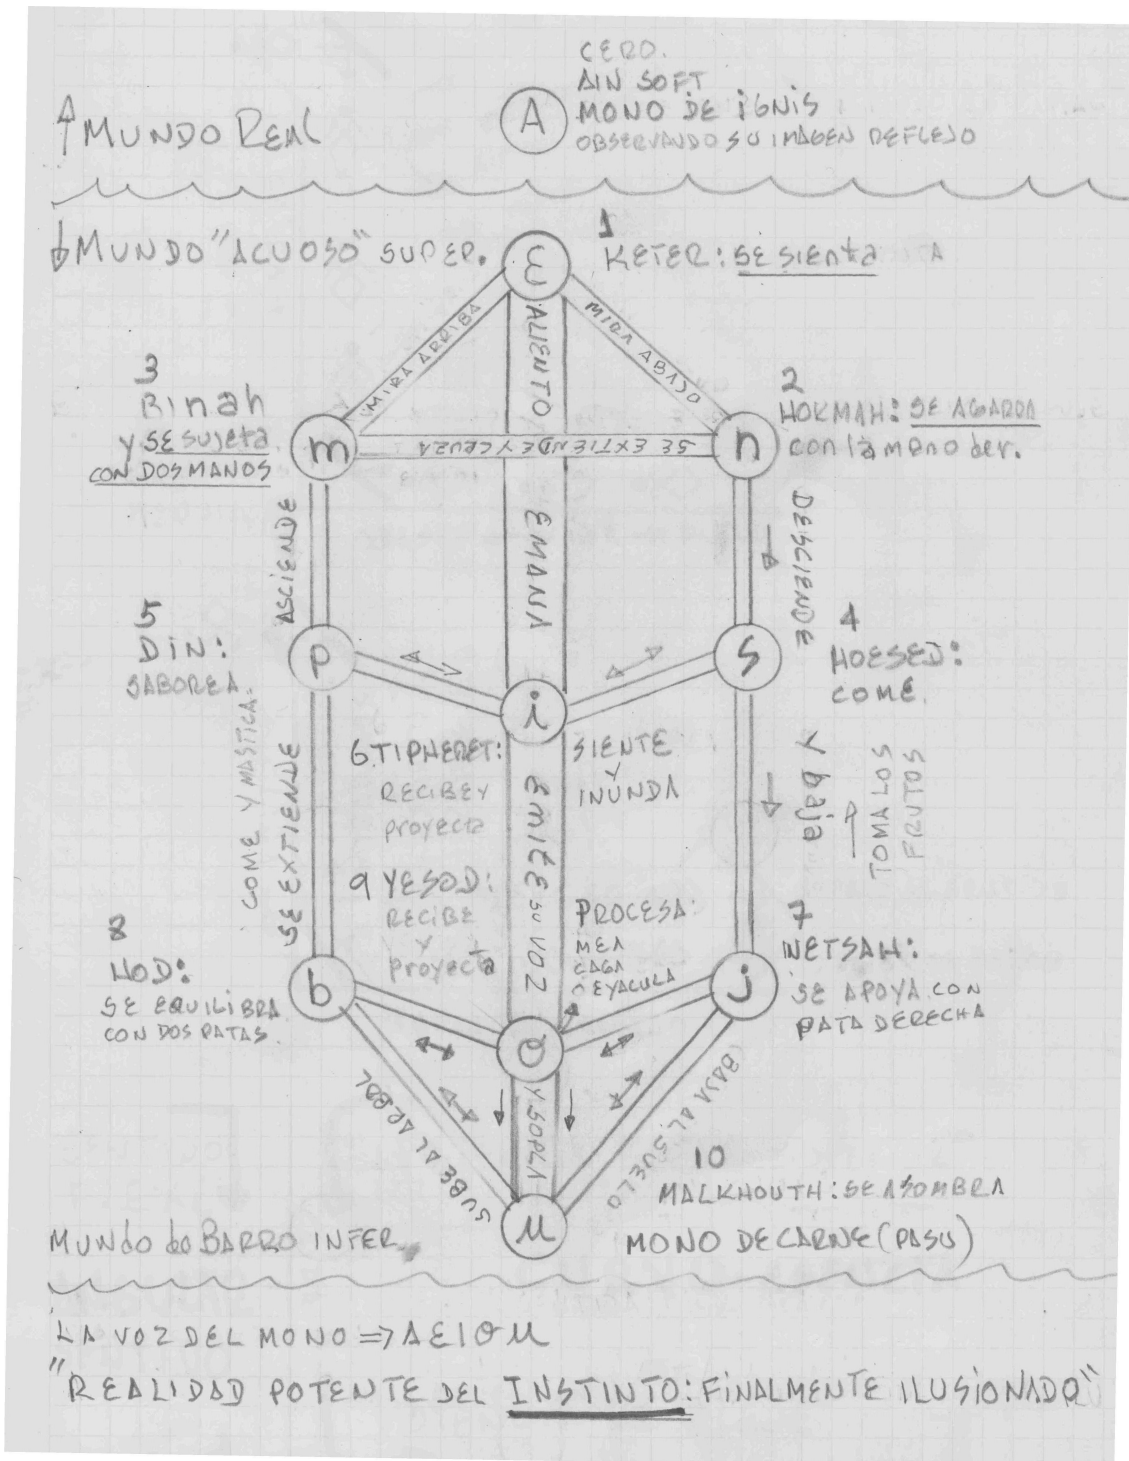 CERO.
AIN SOFT
MONO DE IGNIS
OBSERVANDO SU IMAGEN REFLEJO
A
↑ MUNDO REAL
↓ MUNDO "ACUOSO" SUPER.
1
KETER: SE SIENTA A
E
MIRA ARRIBA
ALIENTO
MIRA ABAJO
3
Binah
y SE SUJETA
CON DOS MANOS
m
SE EXTIENDE Y CRUZA
n
2
HOKMAH: SE AGARRA
con la mano der.
ASCIENDE
EMANA
DESCIENDE
5
DIN:
SABOREA.
P
i
S
4
HOESED:
COME.
COME Y MASTICA.
SE EXTIENDE
6 TIPHERET:
RECIBE Y
proyecta
SIENTE
Y
INUNDA
EMITE SU VOZ
Y baja
TOMA LOS
FRUTOS
9 YESOD:
RECIBE
Y
proyecta
PROCESA:
MEA
CAGA
O EYACULA
8
HOD:
SE EQUILIBRA
CON DOS PATAS.
b
O
j
7
NETSAH:
SE APOYA CON
PATA DERECHA
SUBE AL ARBOL
Y SOPLA
BAJA AL SUELO
10
MALKHOUTH: SE ASOMBRA
MONO DE CARNE (PASU)
u
MUNDO de BARRO INFER.
LA VOZ DEL MONO => AEIOU
"REALIDAD POTENTE DEL INSTINTO: FINALMENTE ILUSIONADO"